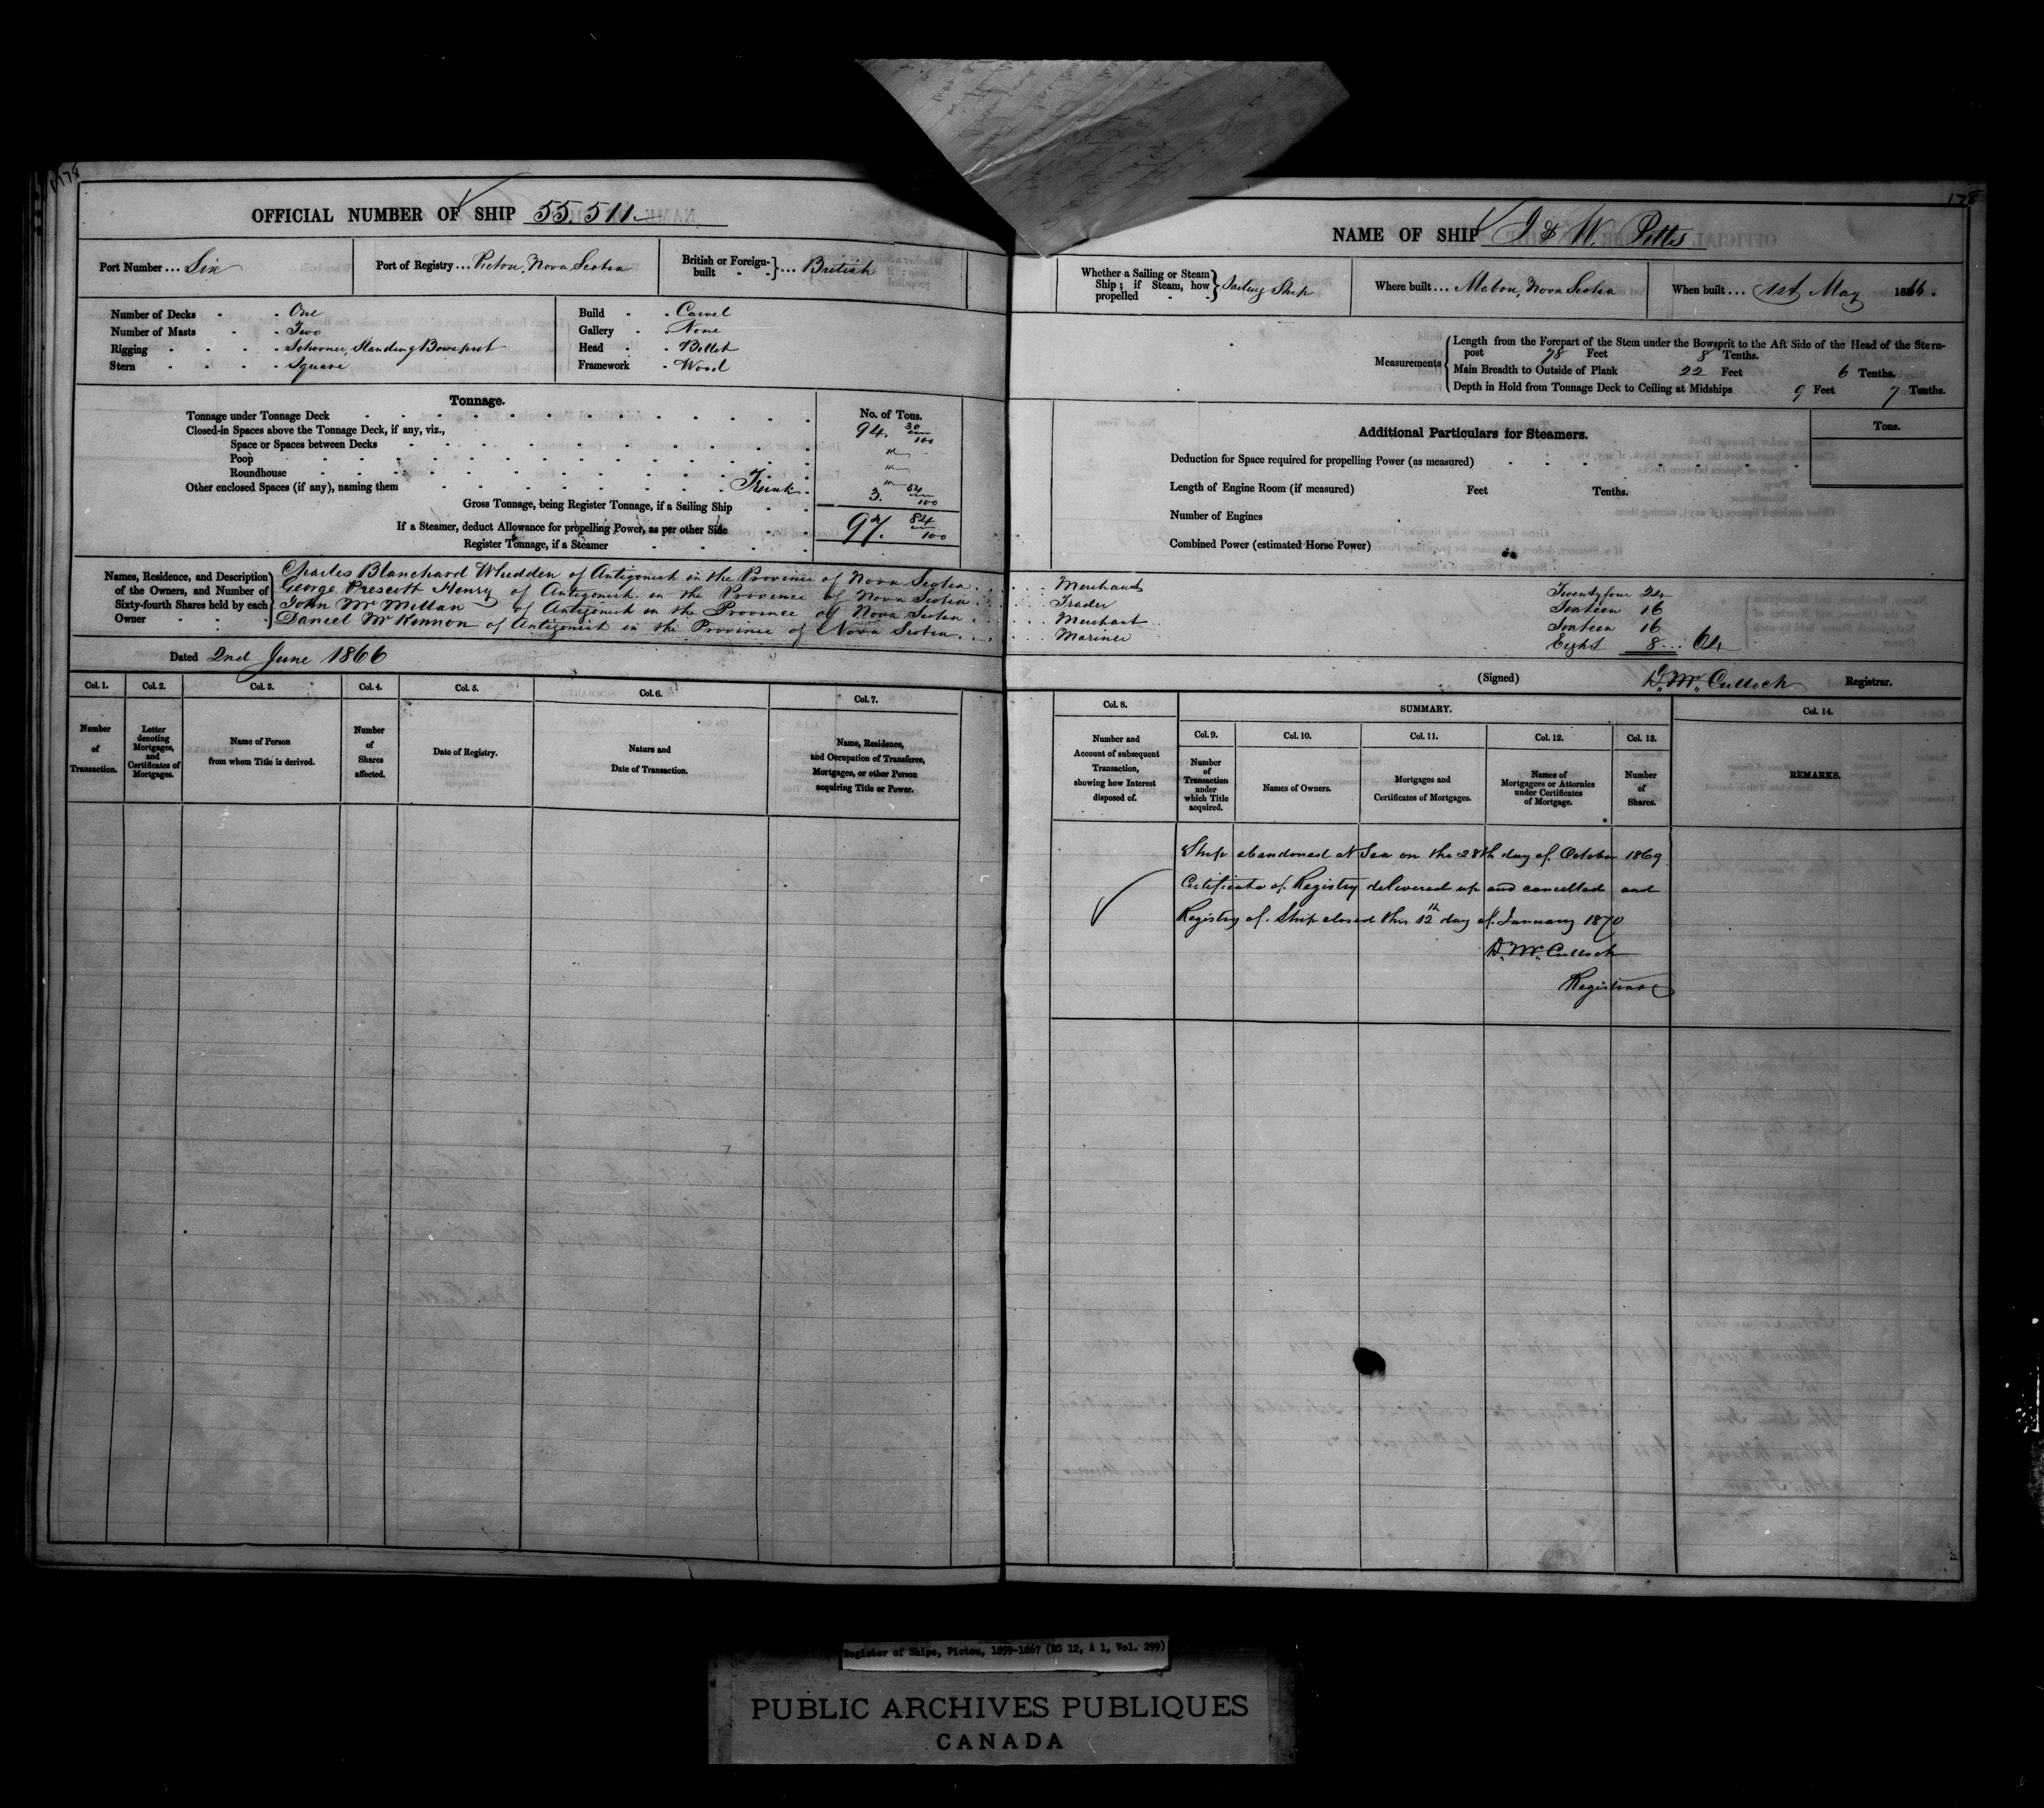 178
OFFICIAL NUMBER OF SHIP 55.511
Port Number ... Six
Port of Registry ... Pictou, Nova Scotia
British or Foreign-built } ... British
Number of Decks - One
Number of Masts - Two
Rigging - Schooner, Standing Bowsprit
Stern - Square
Build - Carvel
Gallery - None
Head - Billet
Framework - Wood
Tonnage.
No. of Tons.
Tonnage under Tonnage Deck 94. 30/100
Closed-in Spaces above the Tonnage Deck, if any, viz.,
Space or Spaces between Decks "
Poop "
Roundhouse "
Other enclosed Spaces (if any), naming them Trunk 3. 54/100
Gross Tonnage, being Register Tonnage, if a Sailing Ship 97. 84/100
If a Steamer, deduct Allowance for propelling Power, as per other Side
Register Tonnage, if a Steamer
Names, Residence, and Description of the Owners, and Number of Sixty-fourth Shares held by each Owner
Charles Blanchard Whidden of Antigonish in the Province of Nova Scotia . . . . . Merchant Twenty four 24
George Prescott Henry of Antigonish in the Province of Nova Scotia . . . . . Trader Sixteen 16
John McMillan of Antigonish in the Province of Nova Scotia . . . . . Merchant Sixteen 16
Daniel McKinnon of Antigonish in the Province of Nova Scotia . . . . . Mariner Eight 8 ... 64
Dated 2nd June 1866
Col. 1. Col. 2. Col. 3. Col. 4. Col. 5. Col. 6. Col. 7.
Number of Transaction.
Letter denoting Mortgages, and Certificates of Mortgages.
Name of Person from whom Title is derived.
Number of Shares affected.
Date of Registry.
Nature and Date of Transaction.
Name, Residence, and Occupation of Transferee, Mortgagee, or other Person acquiring Title or Power.
178
NAME OF SHIP J & W. Potts
Whether a Sailing or Steam Ship; if Steam, how propelled } Sailing Ship
Where built ... Mabou, Nova Scotia
When built ... 1st May 1866.
Measurements
Length from the Forepart of the Stem under the Bowsprit to the Aft Side of the Head of the Stern-
post 78 Feet 8 Tenths.
Main Breadth to Outside of Plank 22 Feet 6 Tenths.
Depth in Hold from Tonnage Deck to Ceiling at Midships 9 Feet 7 Tenths.
Additional Particulars for Steamers.
Tons.
Deduction for Space required for propelling Power (as measured)
Length of Engine Room (if measured) Feet Tenths.
Number of Engines
Combined Power (estimated Horse Power)
(Signed) D. McCulloch Registrar.
Col. 8. SUMMARY. Col. 14.
Col. 9. Col. 10. Col. 11. Col. 12. Col. 13.
Number and Account of subsequent Transaction, showing how Interest disposed of.
Number of Transaction under which Title acquired.
Names of Owners.
Mortgages and Certificates of Mortgages.
Names of Mortgagees or Attornies under Certificates of Mortgage.
Number of Shares.
REMARKS.
Ship abandoned at Sea on the 28th day of October 1869
Certificate of Registry delivered up and cancelled and
Registry of Ship closed this 12th day of January 1870
D. McCulloch
Registrar
Register of Ships, Pictou, 1859-1867 (RG 12, A 1, Vol. 299)
PUBLIC ARCHIVES PUBLIQUES
CANADA